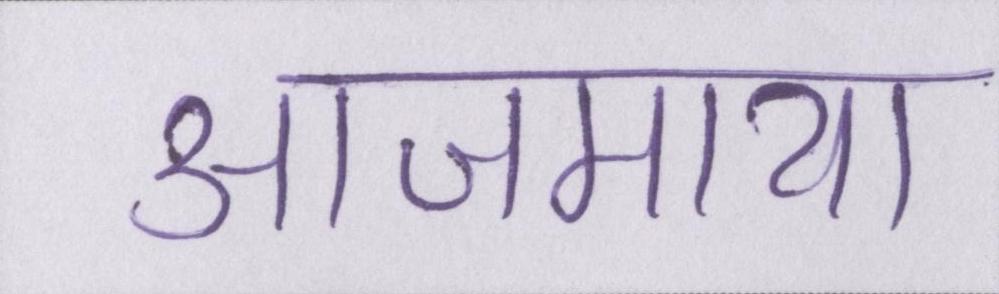 आजमाया